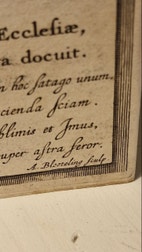 Ecclesiæ,
a docuit.
n hoc satago unum,
cienda sciam.
blimis et Imus,
uper astra feror.
A. Blooteling sculp